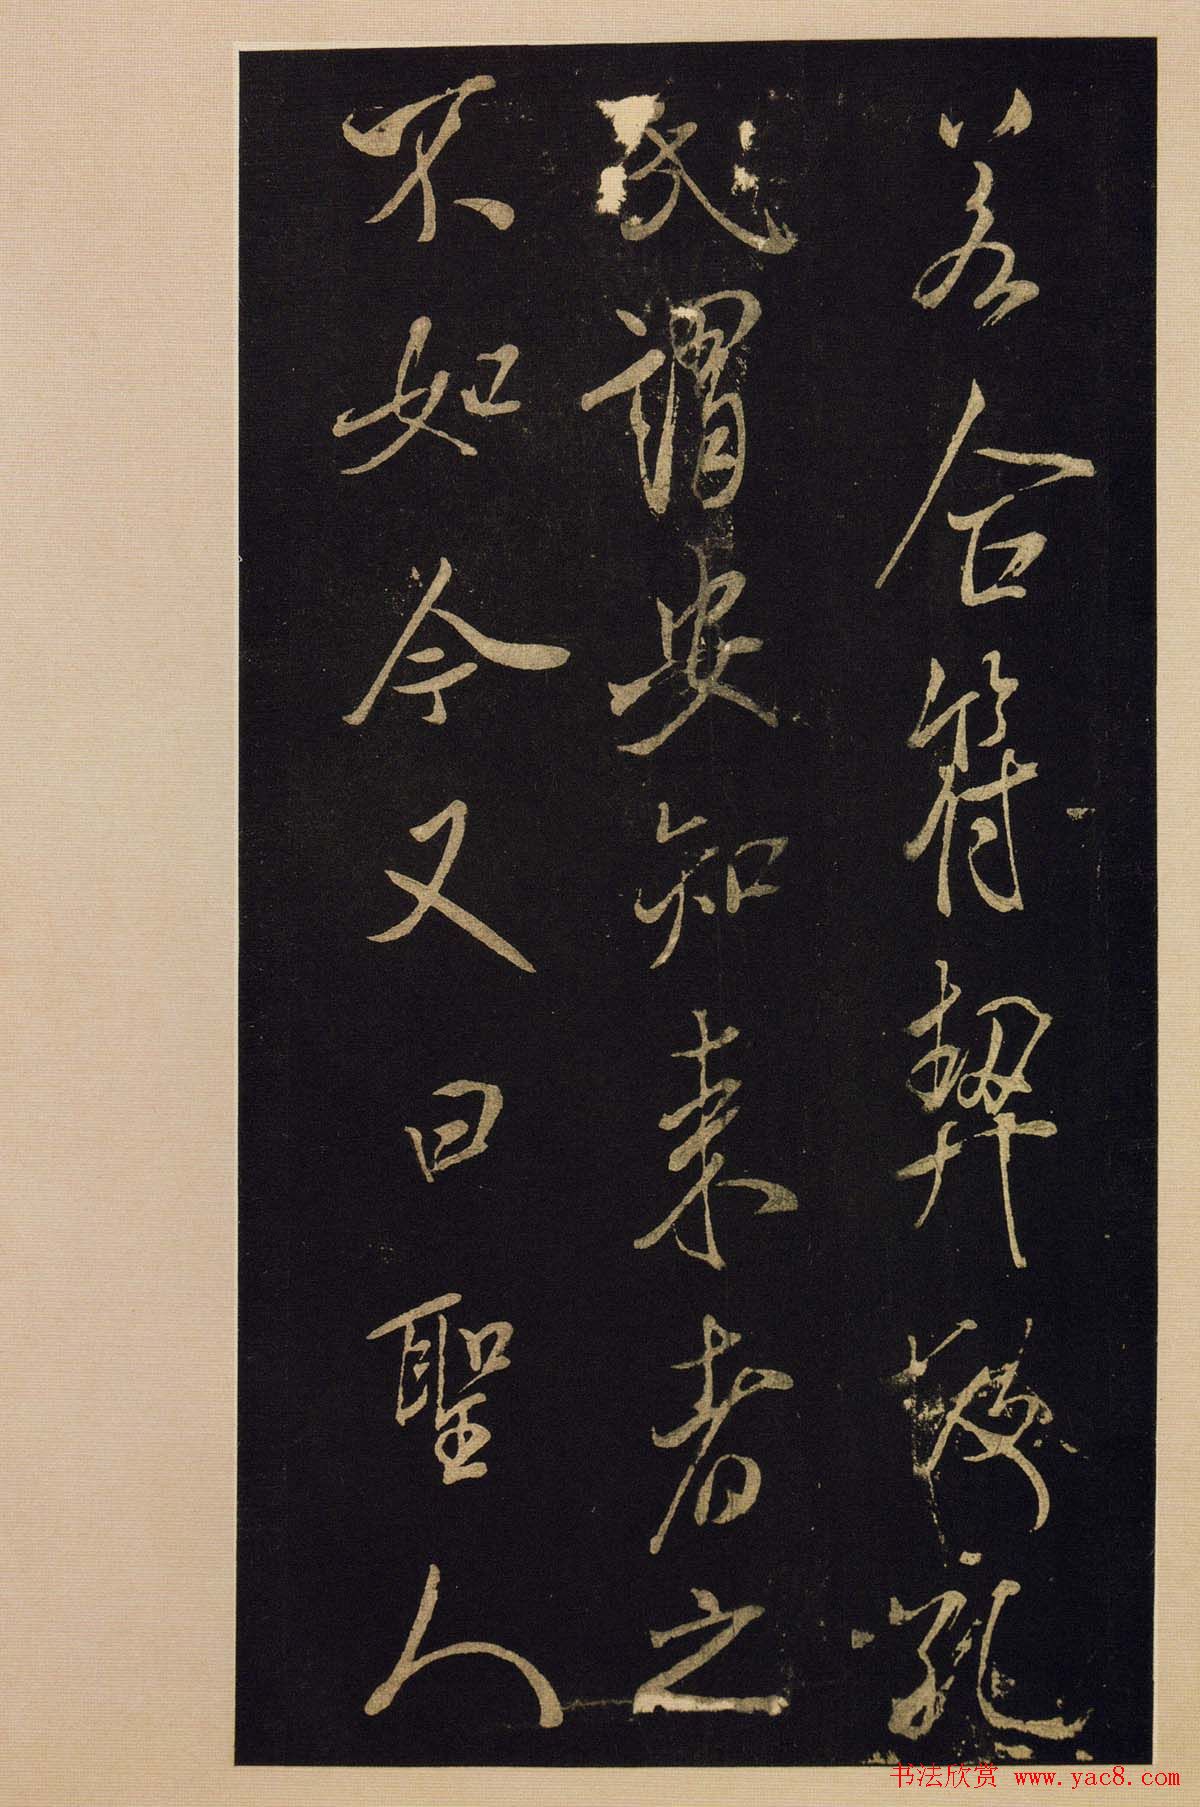 若合符契故孔
氏謂安知来者之
不如今又曰聖人
书法欣赏 www.yac8.com